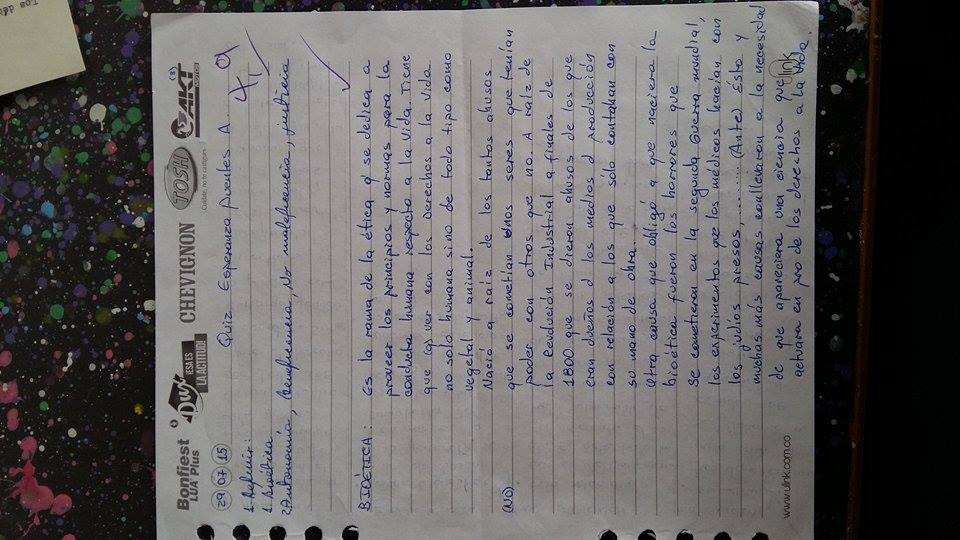 Bonfiest
LUA Plus
¡ESA ES
LA ACTITUD!
CHEVIGNON
TOSH
Cuídate, no te castigues
AKT
29 07 15
Quiz Esperanza Puentes A.
4,9
1. Definir:
1. Bioética
2. Autonomía, beneficencia, No maleficencia, justicia
BIOÉTICA: Es la rama de la ética q se dedica a
proveer los principios y normas para la
conducta humana respecto a la vida. Tiene
que (a) ver con los Derechos a la vida
no solo humana sino de todo tipo como
vegetal y animal.
Nació a raíz de los tantos abusos
(NO) que se cometían unos seres que tenían
poder con otros que no. A raíz de
la Revolución Industrial a finales de
1800 que se dieron abusos de los que
eran dueños d los medios d producción
con relación a los que sólo contaban con
su mano de obra.
Otra causa que obligó a que naciera la
bioética fueron los horrores que
se cometieron en la segunda Guerra mundial,
los experimentos que los médicos hacían con
los judíos presos, ........ (Ante) Ésto y
muchas más causas conllevaron a la necesidad
de que apareciera una ciencia que
actuara en pro de los derechos a la vida.
link
www.ulink.com.co